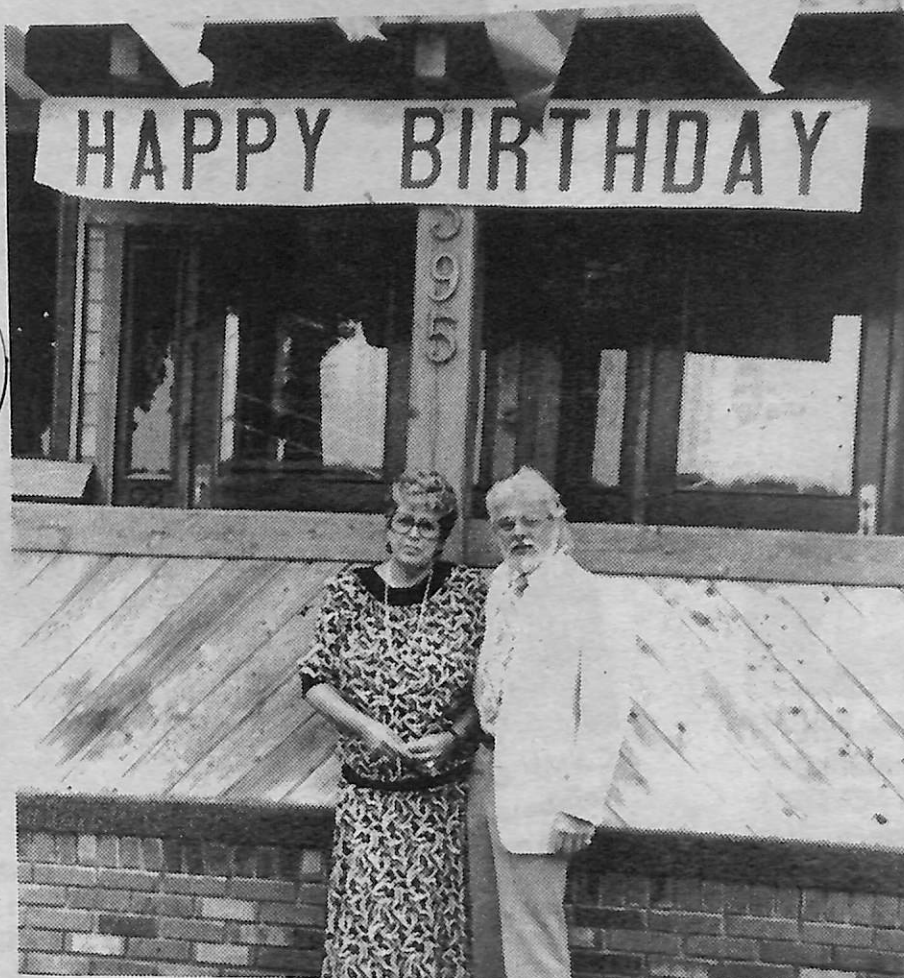 HAPPY BIRTHDAY
95